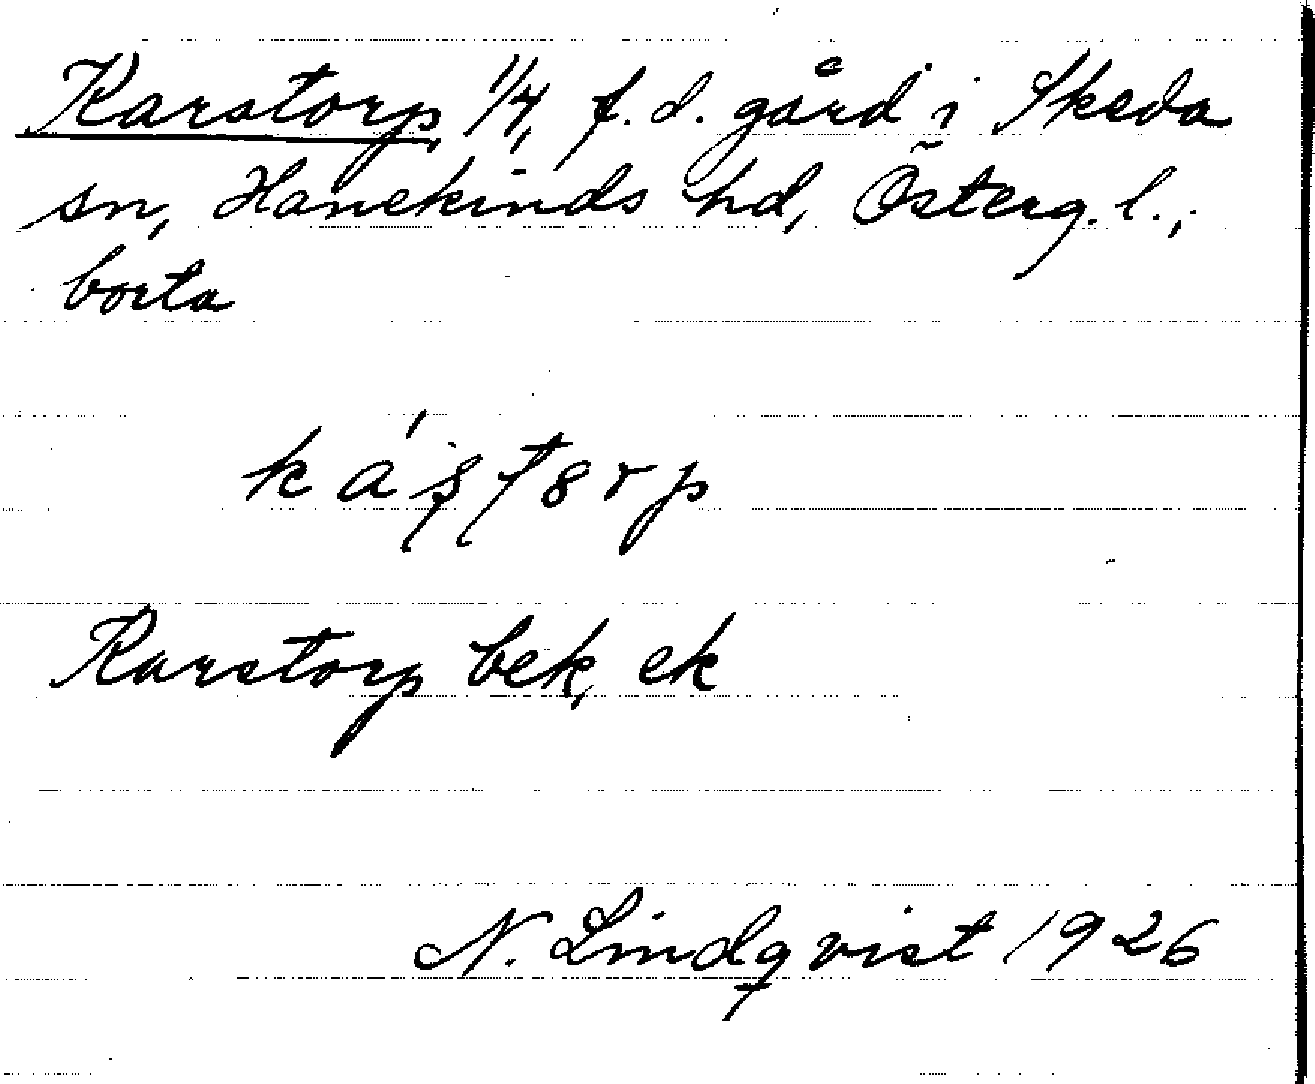 Karstorp 1/4, f.d. gård i Skeda
sn, Hanekinds hd, Österg. l.,
borta
Karstorp bek, ek
N. Lindqvist 1926